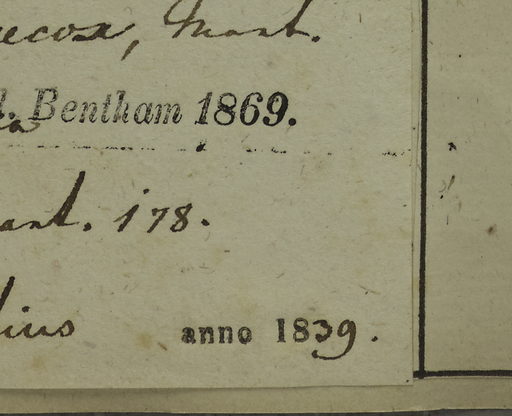 ecox, Mart.
l. Bentham 1869.
art. 178.
anno 1839.